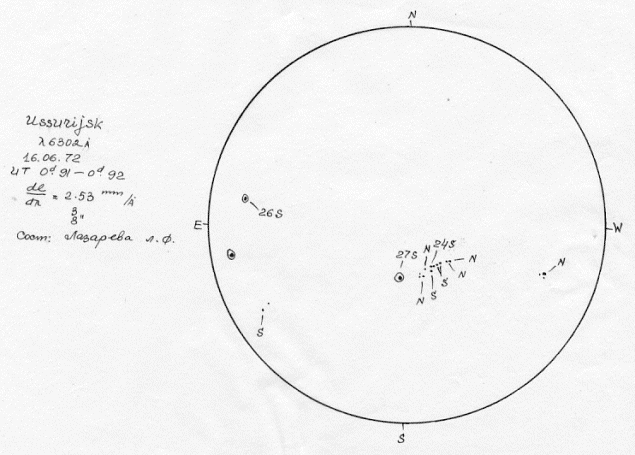 Ussurijsk
λ 6302 Å
16.06.72
UT 0ᵈ.91 – 0ᵈ.92
dl/dλ = 2.53 mm/Å
3
8"
Сост: Лазарева Л. Ф.
N
26S
E
W
27S
N
24S
N
N
S
S
N
N
S
S